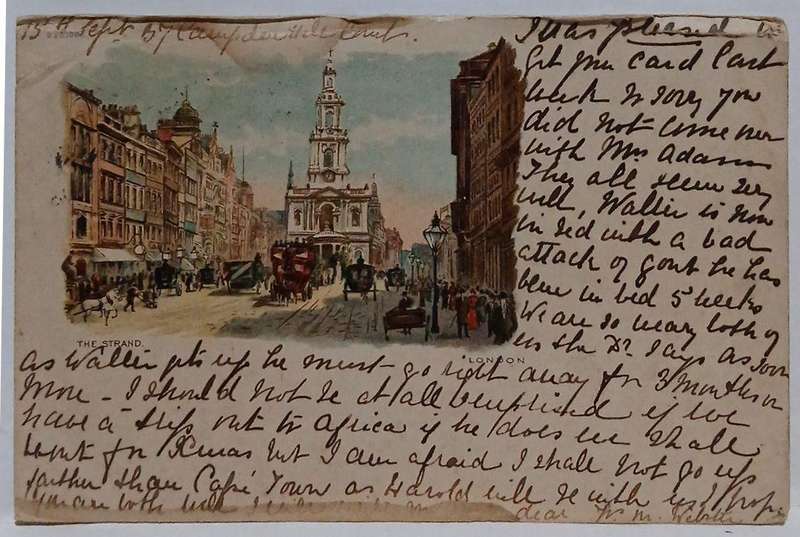 15th Sept 57 Campden Hill Court.
I was pleased to
get your card last
week & sorry you
did not come over
with Mrs Adams
They all seem very
well, Walter is now
in bed with a bad
attack of gout he has
been in bed 5 weeks
We are so weary both of
us the Dr. says as soon
THE STRAND.
LONDON
as Walter gets up he must go right away for 3 months or
more - I should not be at all surprised if we
have a trip out to Africa if he does we shall
start for Xmas but I am afraid I shall not go up
farther than Cape Town as Harold will be with us I hope
you are both well
dear Yrs M. Webster